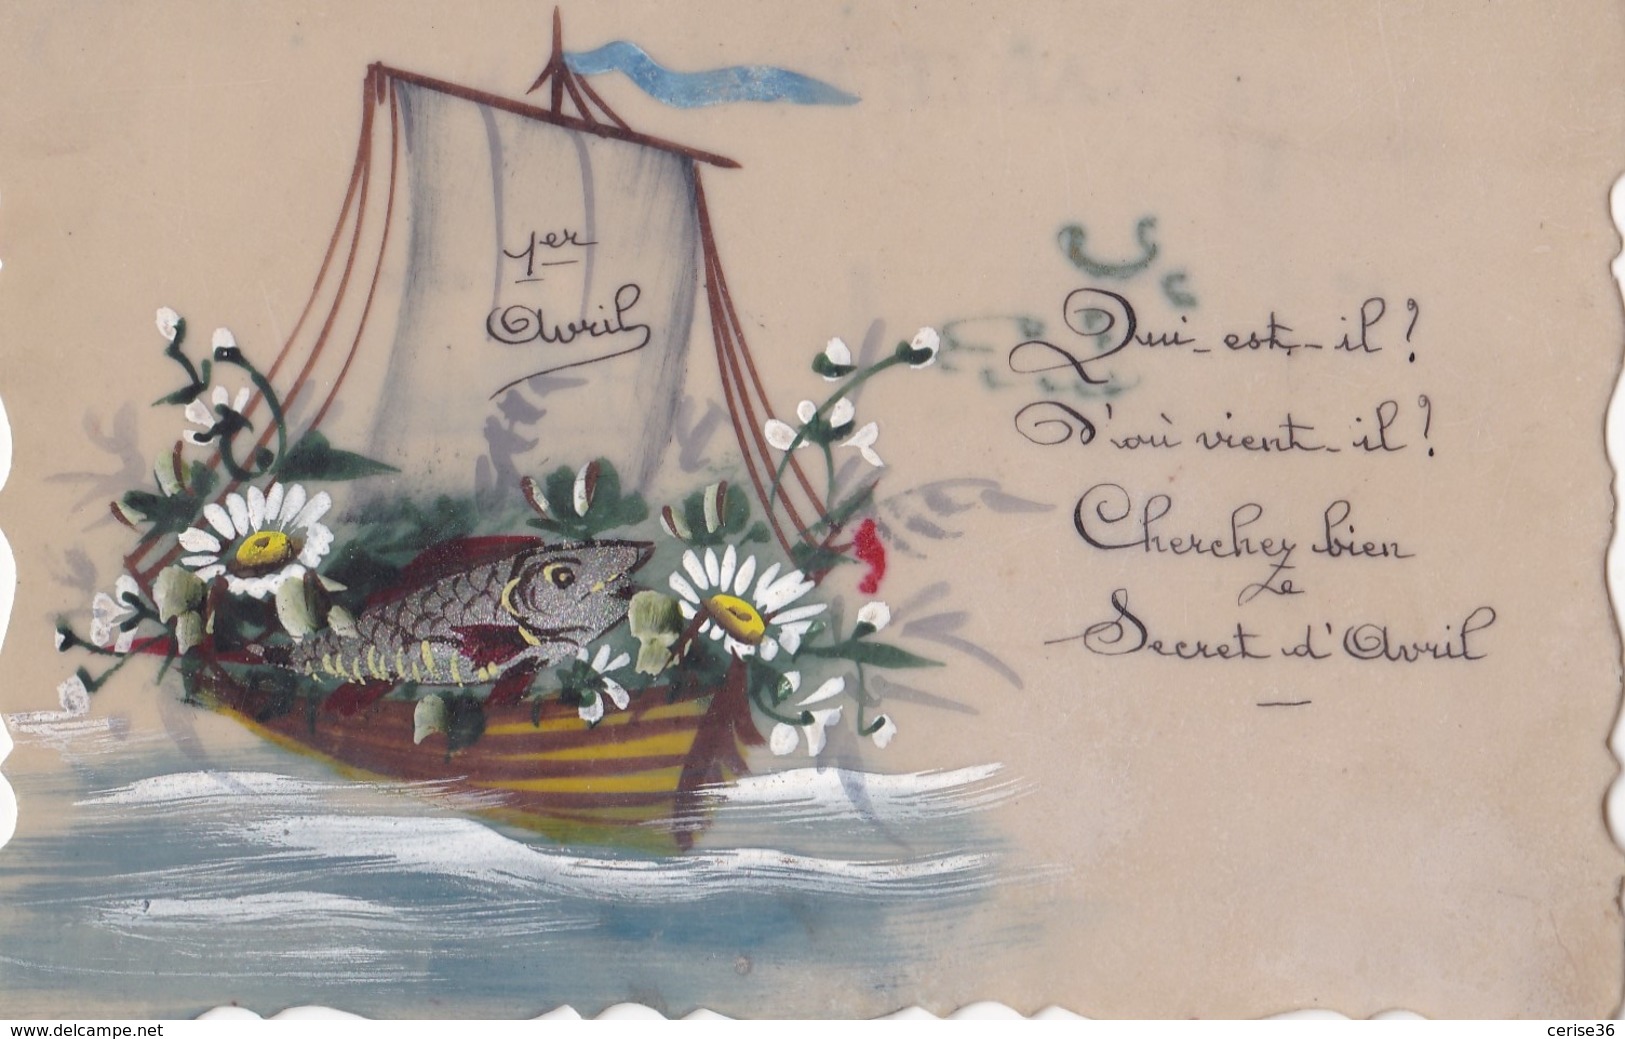 1er
Avril
Qui-est-il?
D'où vient-il?
Cherchez bien
Le
Secret d'Avril
www.delcampe.net
cerise36